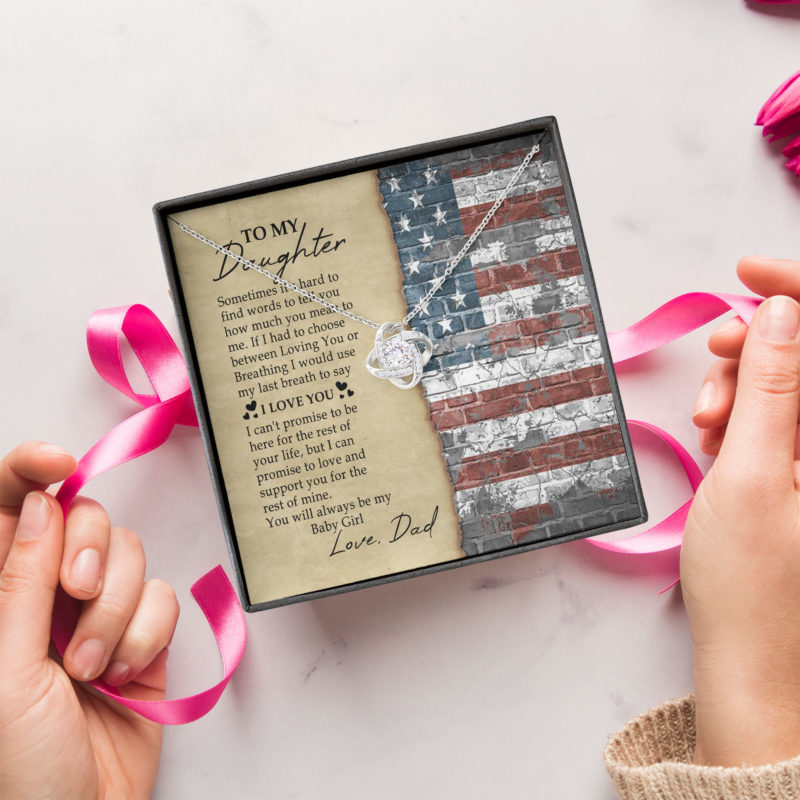 TO MY
Daughter
Sometimes it's hard to
find words to tell you
how much you mean to
me. If I had to choose
between Loving You or
Breathing I would use
my last breath to say
I LOVE YOU
I can't promise to be
here for the rest of
your life, but I can
promise to love and
support you for the
rest of mine.
You will always be my
Baby Girl
Love, Dad